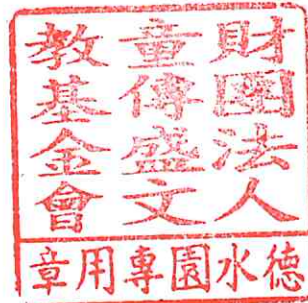 財團法人
童傳盛文
教基金會
德水園專用章